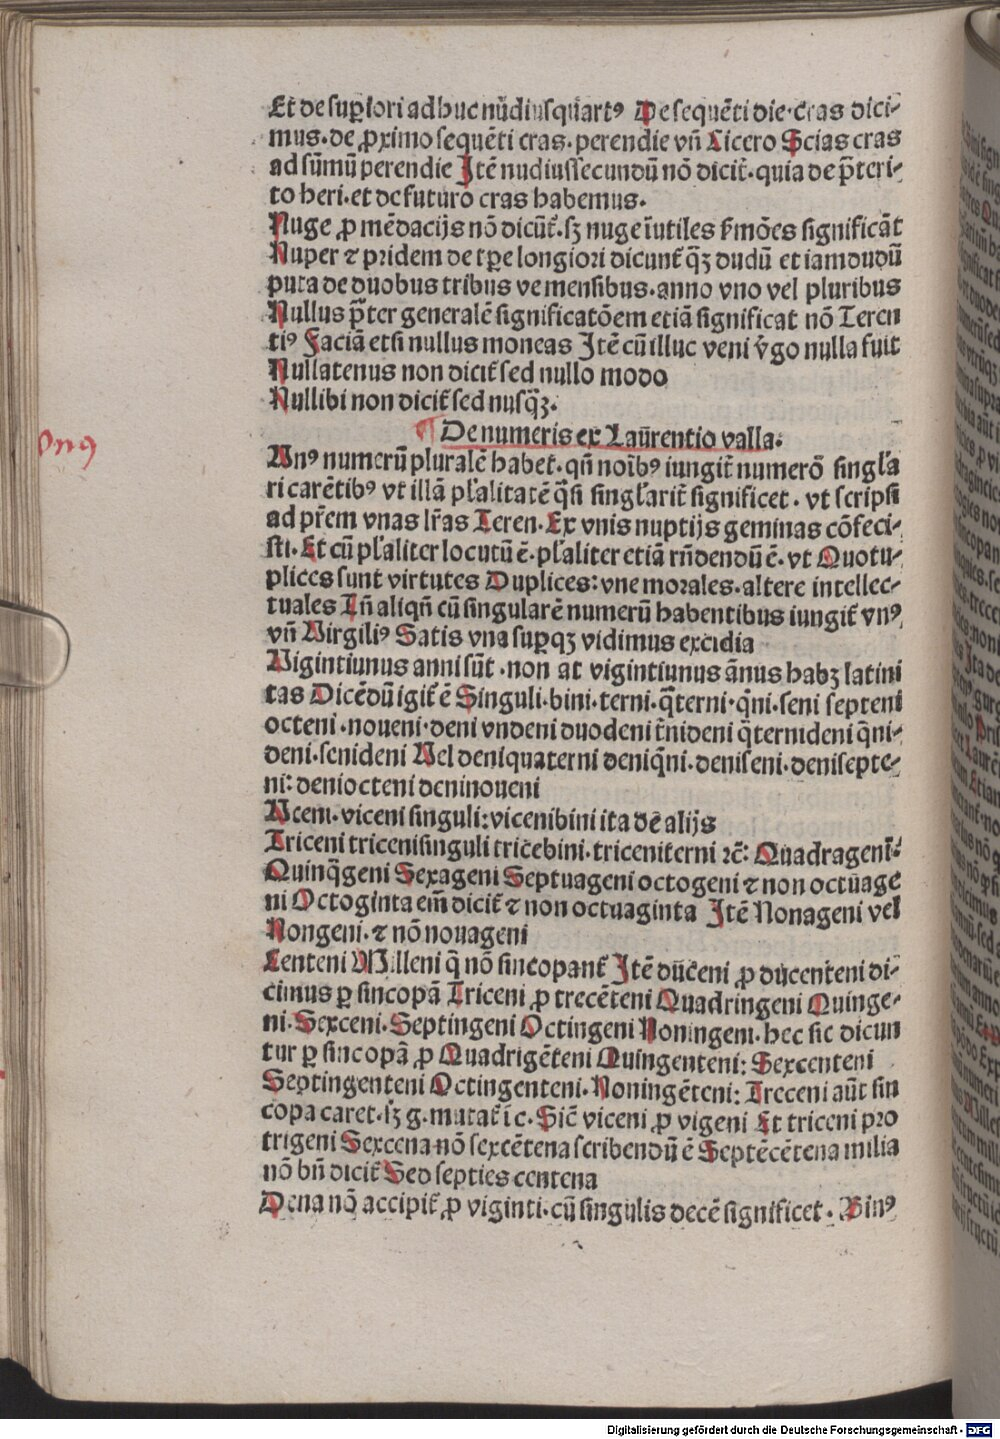 Et de supͣiori adhuc nūdiusquartꝰ De sequēti die· cras dici⸗
mus· de ꝓximo sequēti cras· perendie vñ Cicero Scias cras
ad sūmū perendie Jtē nudiussecundū nō dicit̃· quia de p̃teri⸗
to heri· et de futuro cras habemus·
Nuge ꝓ mēdacijs nō dicūt̃· sꝫ nuge īutiles ẜmōes significāt
Nuper ⁊ pridem de tꝑe longiori dicunt̃ q̄ꝫ dudū et iamdudū
puta de duobus tribus ve mensibus· anno vno vel pluribus
Nullus p̃ter generalē significatōem etiā significat nō Teren
tiꝰ Faciā etsi nullus moneas Jtē cū illuc veni v̓go nulla fuit
Nullatenus non dicit̃ sed nullo modo
Nullibi non dicit̃ sed nusq̄ꝫ·
¶ De numeris ex Laūrentio valla·
Vnꝰ numerū pluralē habet· qñ noībꝰ iungit̃ numerō singƚa
ri carētibꝰ vt illā pƚalitatē q̄si singƚarit̃ significet· vt scripsi
ad pr̄em vnas lr̄as Teren· Ex vnis nuptijs geminas cōfeci⸗
sti· Et cū pƚaliter locutū ē· pƚaliter etiā rñdendū ē· vt Quotu⸗
plices sunt virtutes Duplices: vne morales· altere intellec⸗
tuales Tñ aliqñ cū singularē numerū habentibus iungit̃ vnꝰ
vñ Virgiliꝰ Satis vna suꝑqꝫ vidimus excidia
Vigintiunus anni sūt· non at vigintiunus ānus habꝫ latini
tas Dicēdū igit̃ ē Singuli· bini· terni· q̄terni· q̄ni· seni septeni
octeni· noueni· deni vndeni duodeni t̄nideni q̄ternideni q̄ni⸗
deni· senideni Vel deniquaterni deniq̄ni· deniseni· denisepte⸗
ni: deniocteni deninoueni
Vceni· viceni singuli: vicenibini ita dē alijs
Triceni tricenisinguli tricēbini· triceniterni ⁊c̄: Quadragenī·
Quinq̄geni Sexageni Septuageni octogeni ⁊ non octūage
ni Octoginta em̄ dicit̃ ⁊ non octuaginta Jtē Nonageni vel
Nongeni· ⁊ nō nouageni
Centeni Milleni q̄ nō sincopant̃ Jtē dūceni ꝓ dūcenteni di⸗
cimus ꝑ sincopā Triceni ꝓ trecēteni Quadringeni Quinge⸗
ni· Sexceni· Septingeni Octingeni Noningeni· hec sic dicun
tur ꝑ sincopā ꝓ Quadrigēteni Quingenteni: Sexcenteni
Septingenteni Octingenteni· Noningēteni: Treceni aūt sin
copa caret· sꝫ g· mutat̃ ī c· Sicē viceni ꝓ vigeni Et triceni pro
trigeni Sexcena nō sexcētena scribendū ē Septēcētena milia
nō bñ dicit̃ Sed septies centena
Dena nō accipit̃ ꝓ viginti· cū singulis decē significet· Binꝰ
vnꝰ
Digitalisierung gefördert durch die Deutsche Forschungsgemeinschaft - DFG